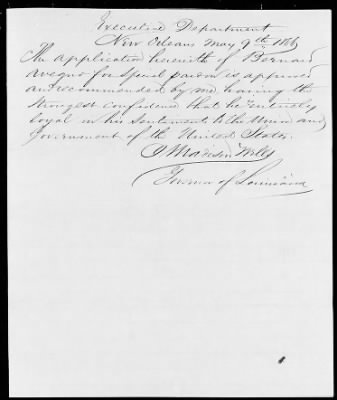 Executive Department
New Orleans May 9th 186
The application herewith of Bernard
Avegno for special pardon is approved
and recommended by me, having the
strongest confidence that he entirely
loyal in his sentiments to the Union and
Government of the United States.
J Madison Wells
Governor of Louisiana